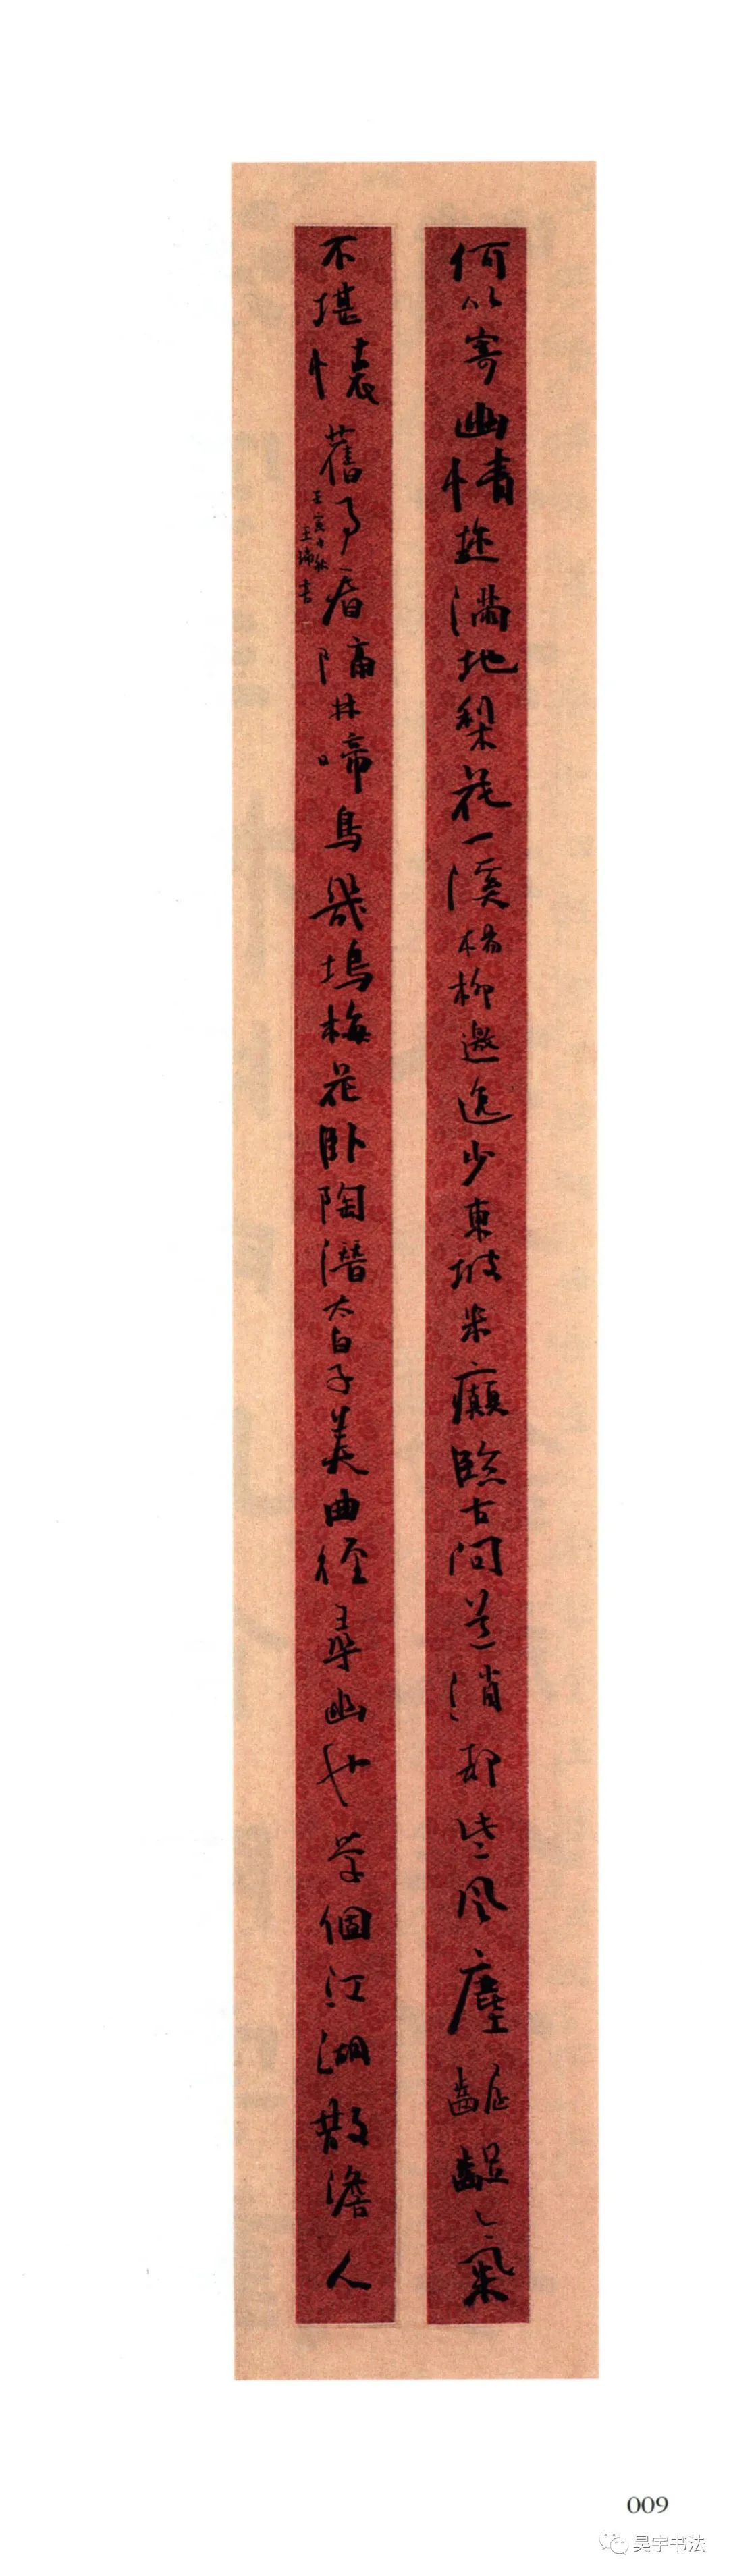 何以寄幽情趁滿地梨花一溪楊柳邀逸少東坡米癲臨古問道消却些風塵齷齪氣
不堪懷舊事看隔林啼鳥幾塢梅花卧陶潛太白子美曲徑尋幽也学個江湖散澹人
壬寅中秋
王書
009
昊宇书法